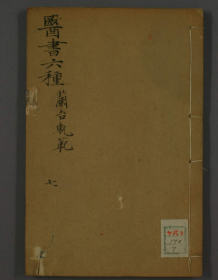 醫書六種
蘭台軌範
七